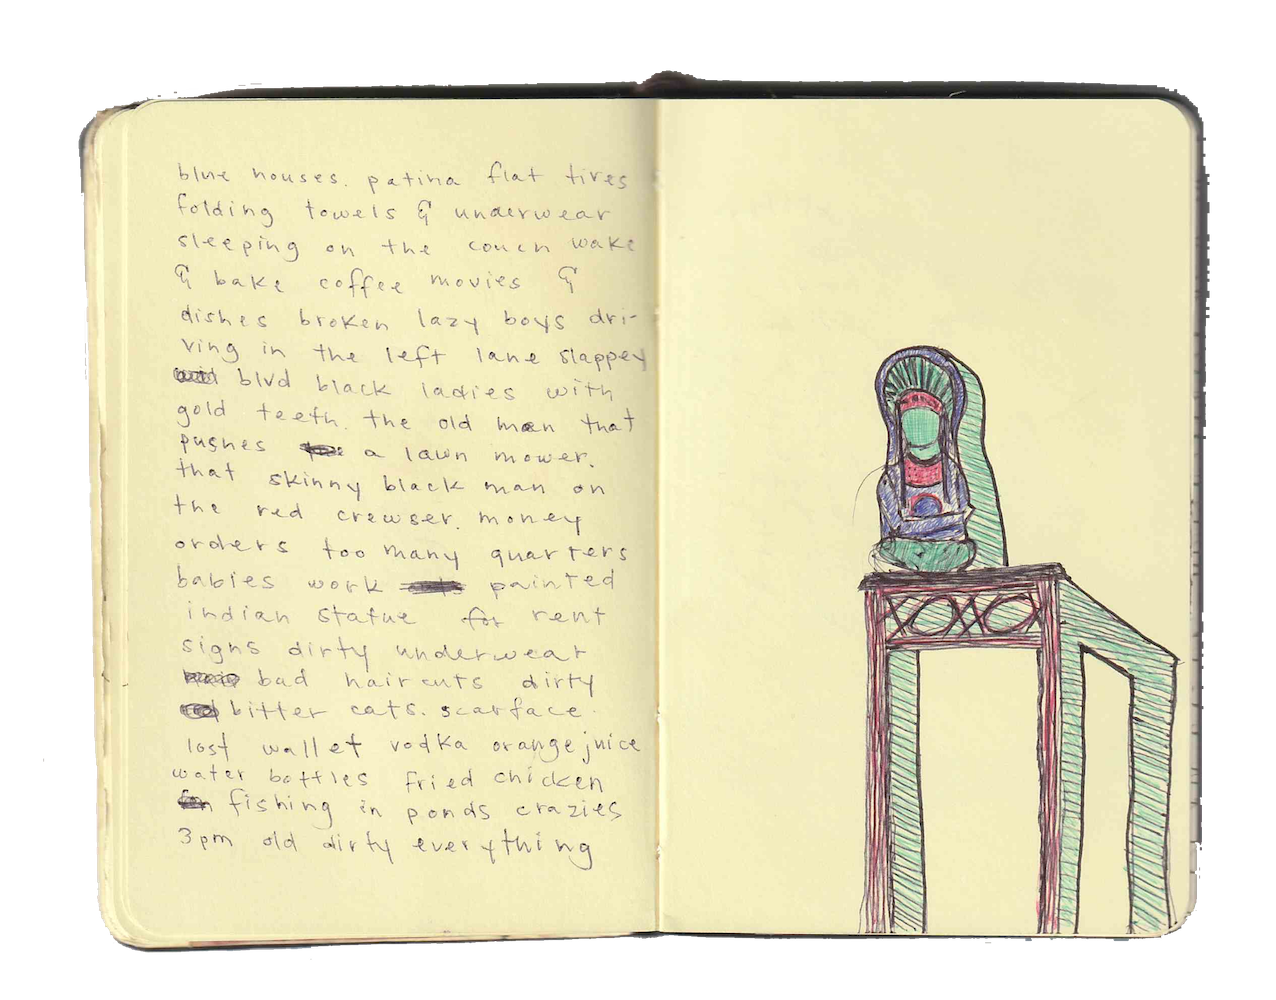 blue houses. patina flat tires
folding towels & underwear
sleeping on the couch wake
& bake coffee movies &
dishes broken lazy boys dri-
ving in the left lane slappey
blvd black ladies with
gold teeth. the old man that
pushes a lawn mower.
that skinny black man on
the red crewser. money
orders too many quarters
babies work painted
indian statue for rent
signs dirty underwear
bad haircuts dirty
bitter cats. scarface.
lost wallet vodka orange juice
water bottles fried chicken
fishing in ponds crazies
3pm old dirty everything